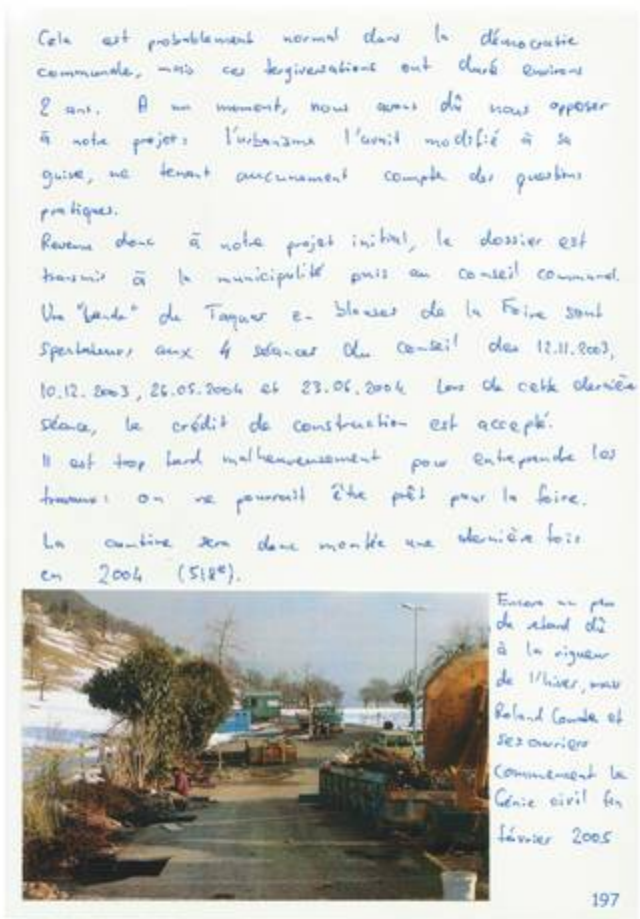 Cela est probablement normal dans la démocratie
communale, mais ces tergiversations ont duré environ
2 ans. A un moment, nous avons dû nous opposer
à notre projet: l'urbanisme l'avait modifié à sa
guise, ne tenant aucunement compte des questions
pratiques.
Revenu donc à notre projet initial, le dossier est
transmis à la municipalité puis au conseil communal.
Une "bande" du Taquer en blouses de la Foire sont
spectateurs aux 4 séances du conseil des 12.11.2003,
10.12.2003, 26.05.2004 et 23.06.2004 Lors de cette dernière
séance, le crédit de construction est accepté.
Il est trop tard malheureusement pour entreprendre les
travaux: on ne pourrait être prêt pour la foire.
La cantine sera donc montée une dernière fois
en 2004 (518e).
Encore un peu
de retard dû
à la rigueur
de l'hiver, mais
Roland et
ses ouvriers
commencent le
Génie civil fin
février 2005
197